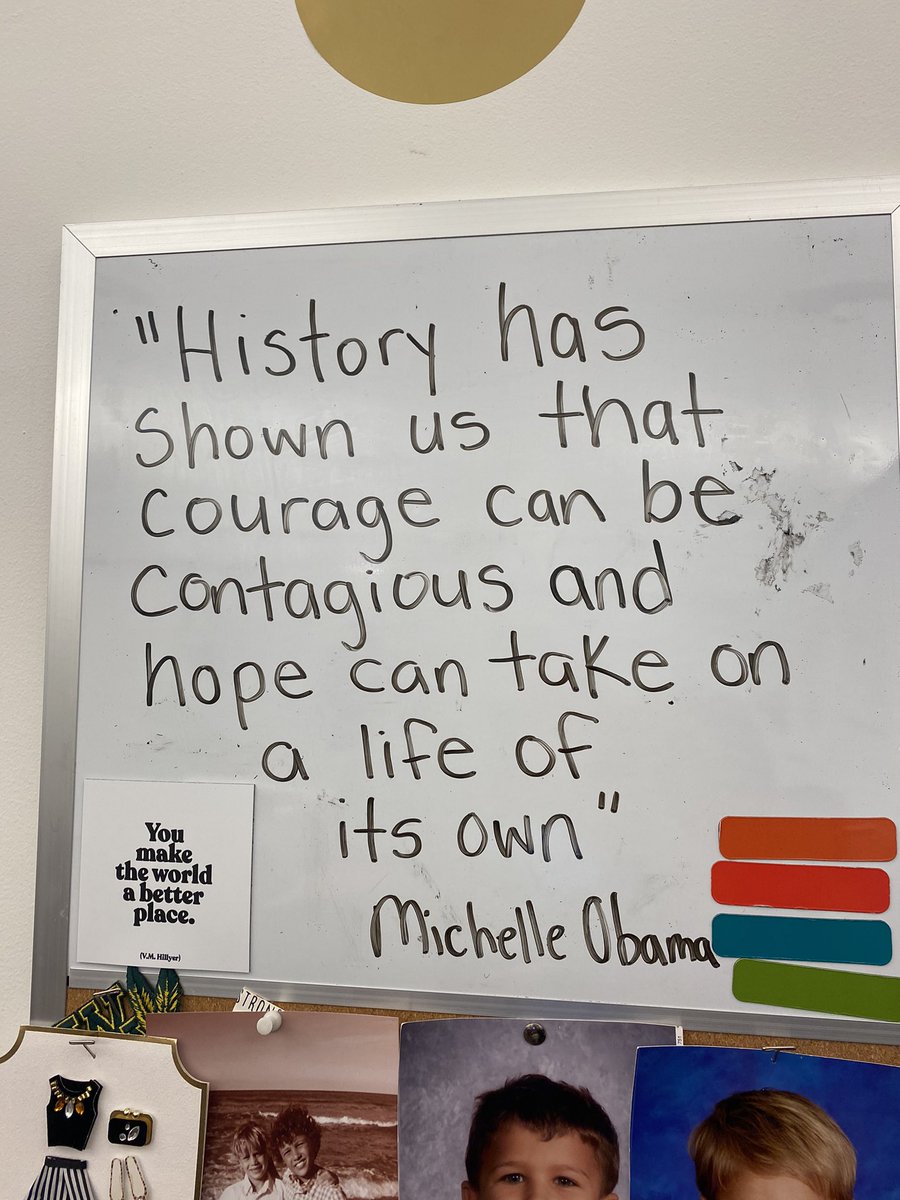 "History has
shown us that
courage can be
contagious and
hope can take on
a life of
its own"
Michelle Obama
You
make
the world
a better
place.
(V.M. Hillyer)